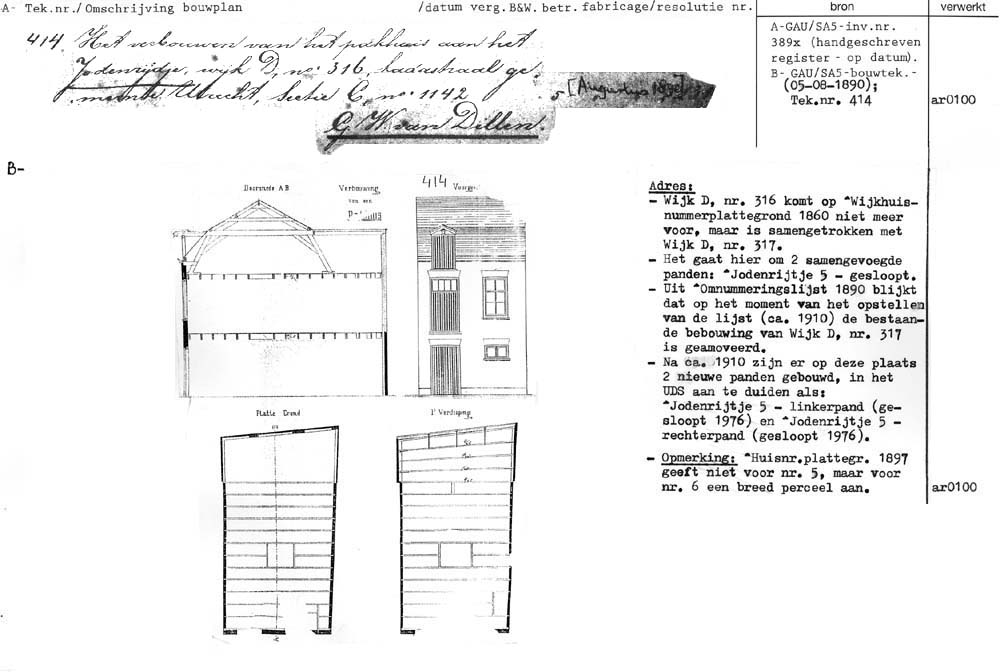 A- Tek.nr./Omschrijving bouwplan /datum verg.B&W. betr. fabricage/resolutie nr. bron verwerkt
414. Het verbouwen van het pakhuis aan het
Jodenrijdje, wijk D, no 316, kadastraal ge-
meente Utrecht, Sectie C, no 1142
5 [Augustus 1890]
G. W. van Dillen.
A-GAU/SA5-inv.nr.
389x (handgeschreven
register - op datum).
B- GAU/SA5-bouwtek.-
(05-08-1890);
Tek.nr. 414
ar0100
B-
Doorsnede A B
Verbouwing
van een
414
Platte Grond
1e Verdieping
Adres:
- Wijk D, nr. 316 komt op ^Wijkhuis-
nummerplattegrond 1860 niet meer
voor, maar is samengetrokken met
Wijk D, nr. 317.
- Het gaat hier om 2 samengevoegde
panden: ^Jodenrijtje 5 - gesloopt.
- Uit ^Omnummeringslijst 1890 blijkt
dat op het moment van het opstellen
van de lijst (ca. 1910) de bestaan-
de bebouwing van Wijk D, nr. 317
is geamoveerd.
- Na ca. 1910 zijn er op deze plaats
2 nieuwe panden gebouwd, in het
UDS aan te duiden als:
^Jodenrijtje 5 - linkerpand (ge-
sloopt 1976) en ^Jodenrijtje 5 -
rechterpand (gesloopt 1976).
- Opmerking: ^Huisnr.plattegr. 1897
geeft niet voor nr. 5, maar voor
nr. 6 een breed perceel aan.
ar0100